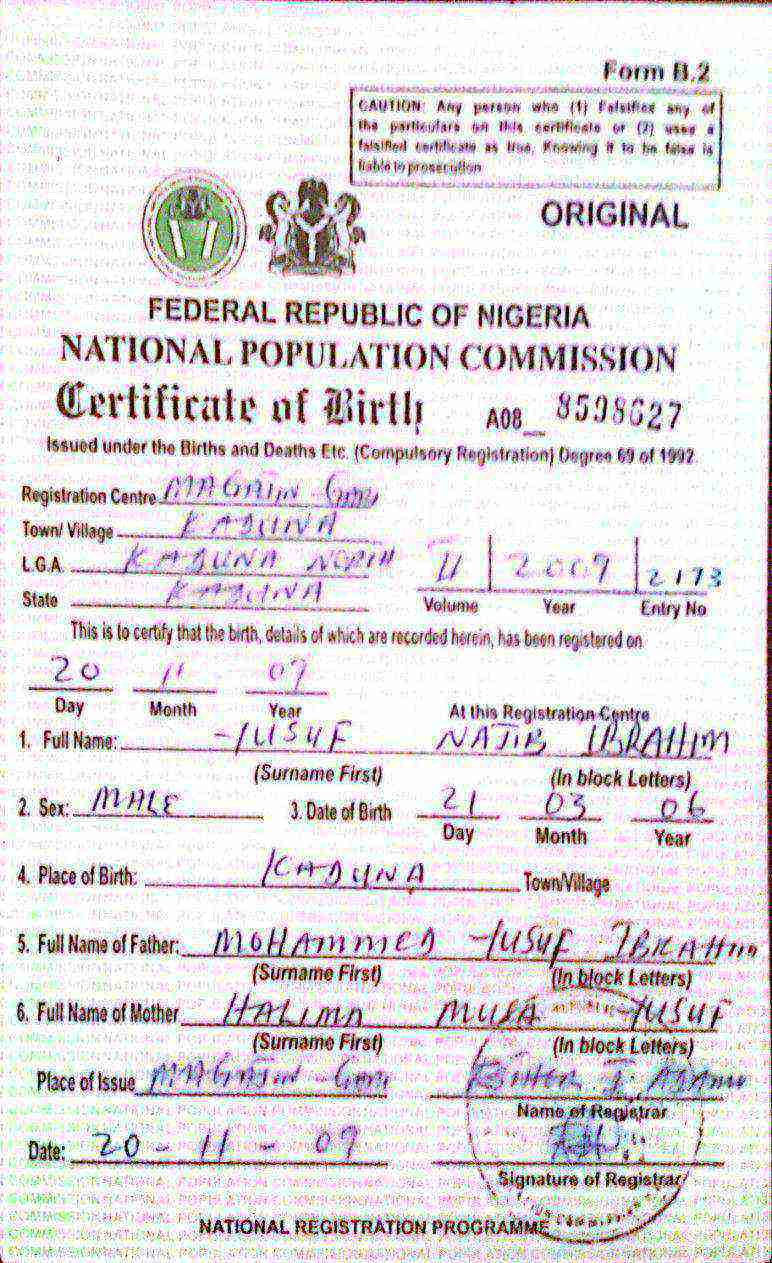 Form B.2
CAUTION: Any person who (1) Falsifies any of
the particulars on this certificate or (2) uses a
falsified certificate as true, Knowing it to be false is
liable to prosecution
ORIGINAL
FEDERAL REPUBLIC OF NIGERIA
NATIONAL POPULATION COMMISSION
Certificate of Birth A08_ 8598627
Issued under the Births and Deaths Etc. (Compulsory Registration) Degree 69 of 1992
Registration Centre MAGAJIN GARI
Town/ Village KADUNA
L.G.A. KADUNA NORTH II 2009 2173
State KADUNA Volume Year Entry No
This is to certify that the birth, details of which are recorded herein, has been registered on
20 11 09
Day Month Year At this Registration Centre
1. Full Name: YUSUF NAJIB IBRAHIM
(Surname First) (In block Letters)
2. Sex: MALE 3. Date of Birth 21 03 06
Day Month Year
4. Place of Birth: KADUNA Town/Village
5. Full Name of Father: MOHAMMED YUSUF IBRAHIM
(Surname First) (In block Letters)
6. Full Name of Mother HALIMA MUSA YUSUF
(Surname First) (In block Letters)
Place of Issue MAGAJIN GARI ADAMU
Name of Registrar
Date: 20 - 11 - 09
Signature of Registrar
NATIONAL REGISTRATION PROGRAMME